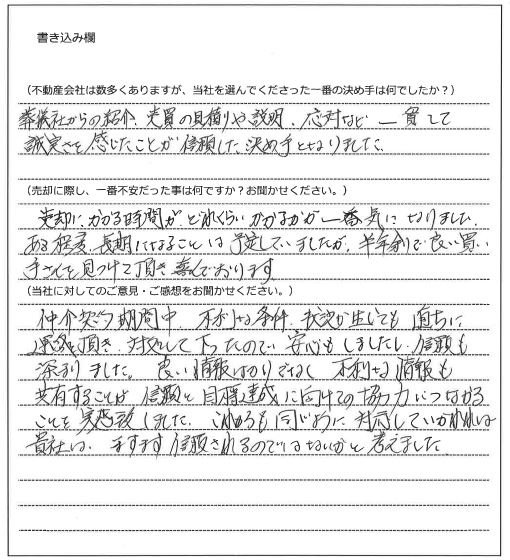 書き込み欄
（不動産会社は数多くありますが、当社を選んでくださった一番の決め手は何でしたか？）
葬儀社からの紹介、売買の見積りや説明、応対など一貫して
誠実さを感じたことが信頼した決め手となりました。
（売却に際し、一番不安だった事は何ですか？お聞かせください。）
売却にかかる時間がどれくらいかかるかが一番気になりました。
ある程度、長期になることは予定していましたが、半年余りで良い買い
手さんを見つけて頂き喜んでおります
（当社に対してのご意見・ご感想をお聞かせください。）
仲介契約期間中 不利な条件、状況が生じても直ちに
連絡を頂き、対処して下ったので安心もしましたし信頼も
深まりました。良い情報ばかりでなく 不利な情報も
共有することは 信頼と目標達成に向けての協力につながる
ことを実感致しました。これからも同じように対応していかれれば
貴社は、ますます信頼されるのではないかと考えました